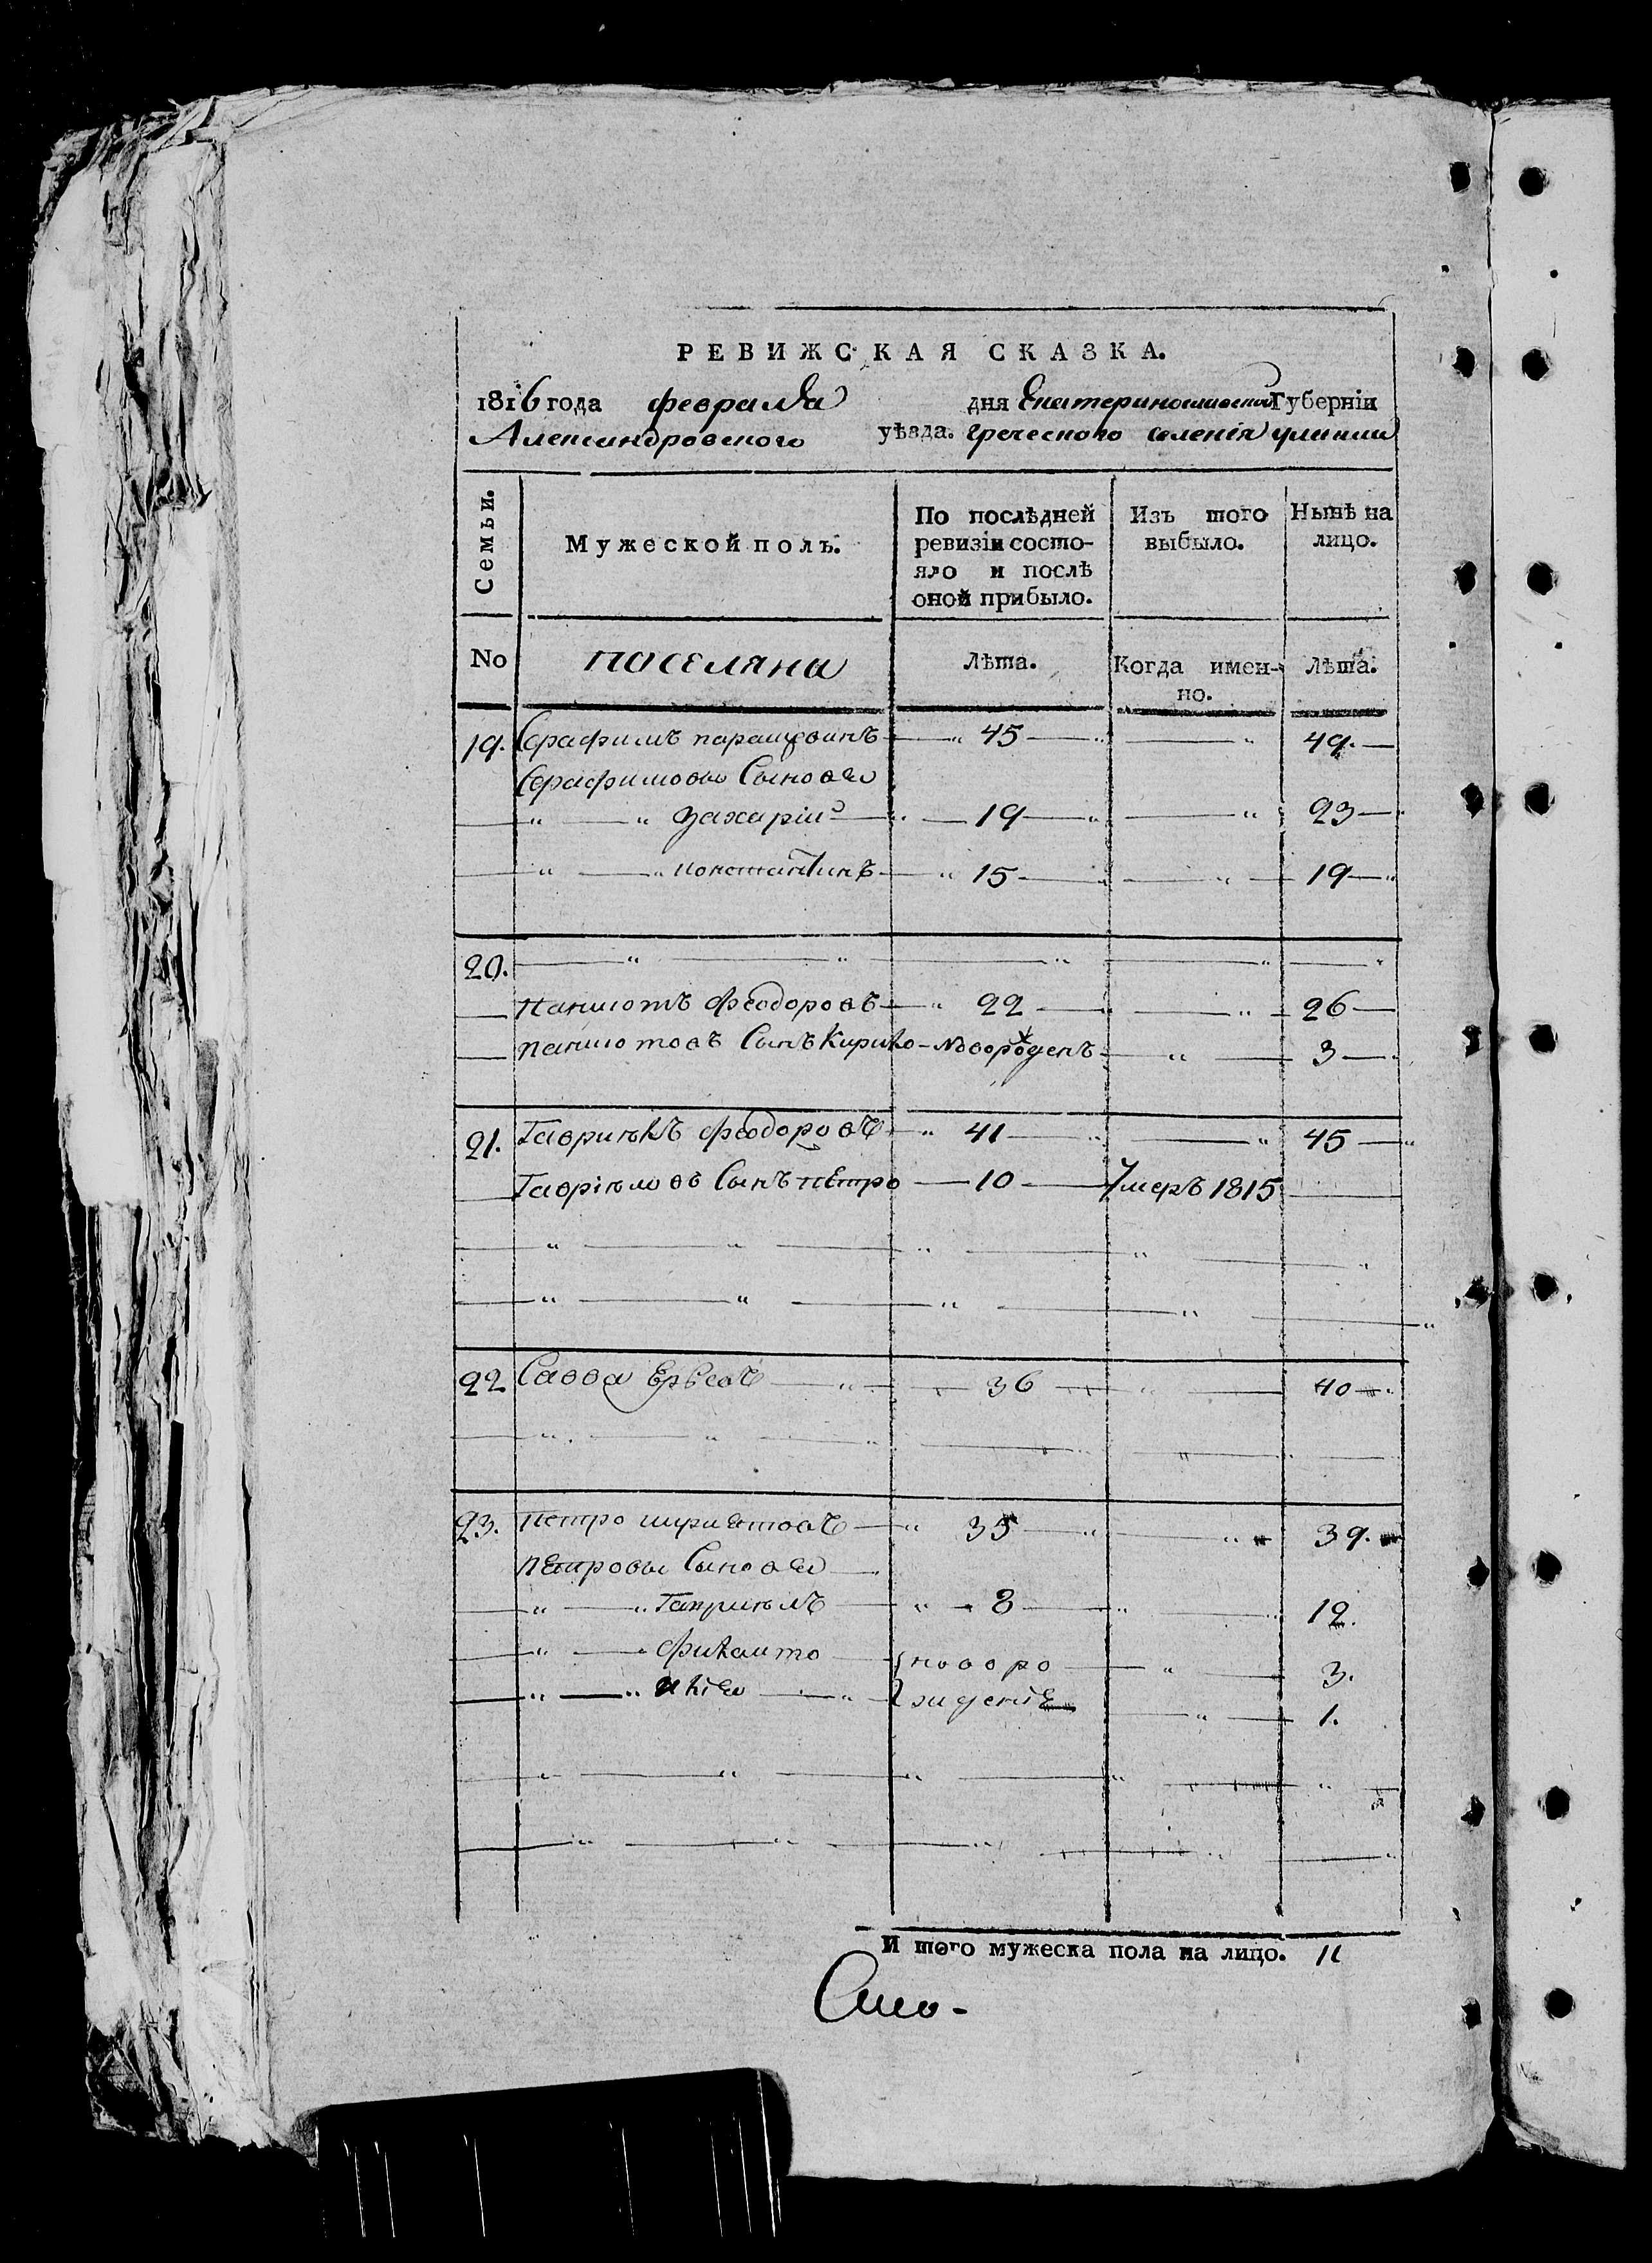 РЕВИЖСКАЯ СКАЗКА.
1816 года февраля дня Екатеринославской Губерніи
Александровского уѣзда. греческого селенія
Семьи. Мужеской полъ. По послѣдней ревизіи состояло и послѣ оной прибыло. Изъ того выбыло. Нынѣ на лицо.
No поселяна Лѣта. Когда именно. Лѣта.
19. Серафимъ 45 49.
Серафимовы Сыновья
Захарій 19 23
Константинъ 15 19
20.
Панаіотъ Феодоровъ 22 26
Панаіотовъ Сынъ Кирияко новорожденъ 3
21. Гавриилъ Феодоровъ 41 45
Гавріиловъ Сынъ Петро 10 Умеръ 1815
22 Савва 36 40
23. Петро 35 39.
Петровы Сыновья
Гавриилъ 8 12.
новоро 3.
Илія жденіе 1.
И того мужеска пола на лицо. 11